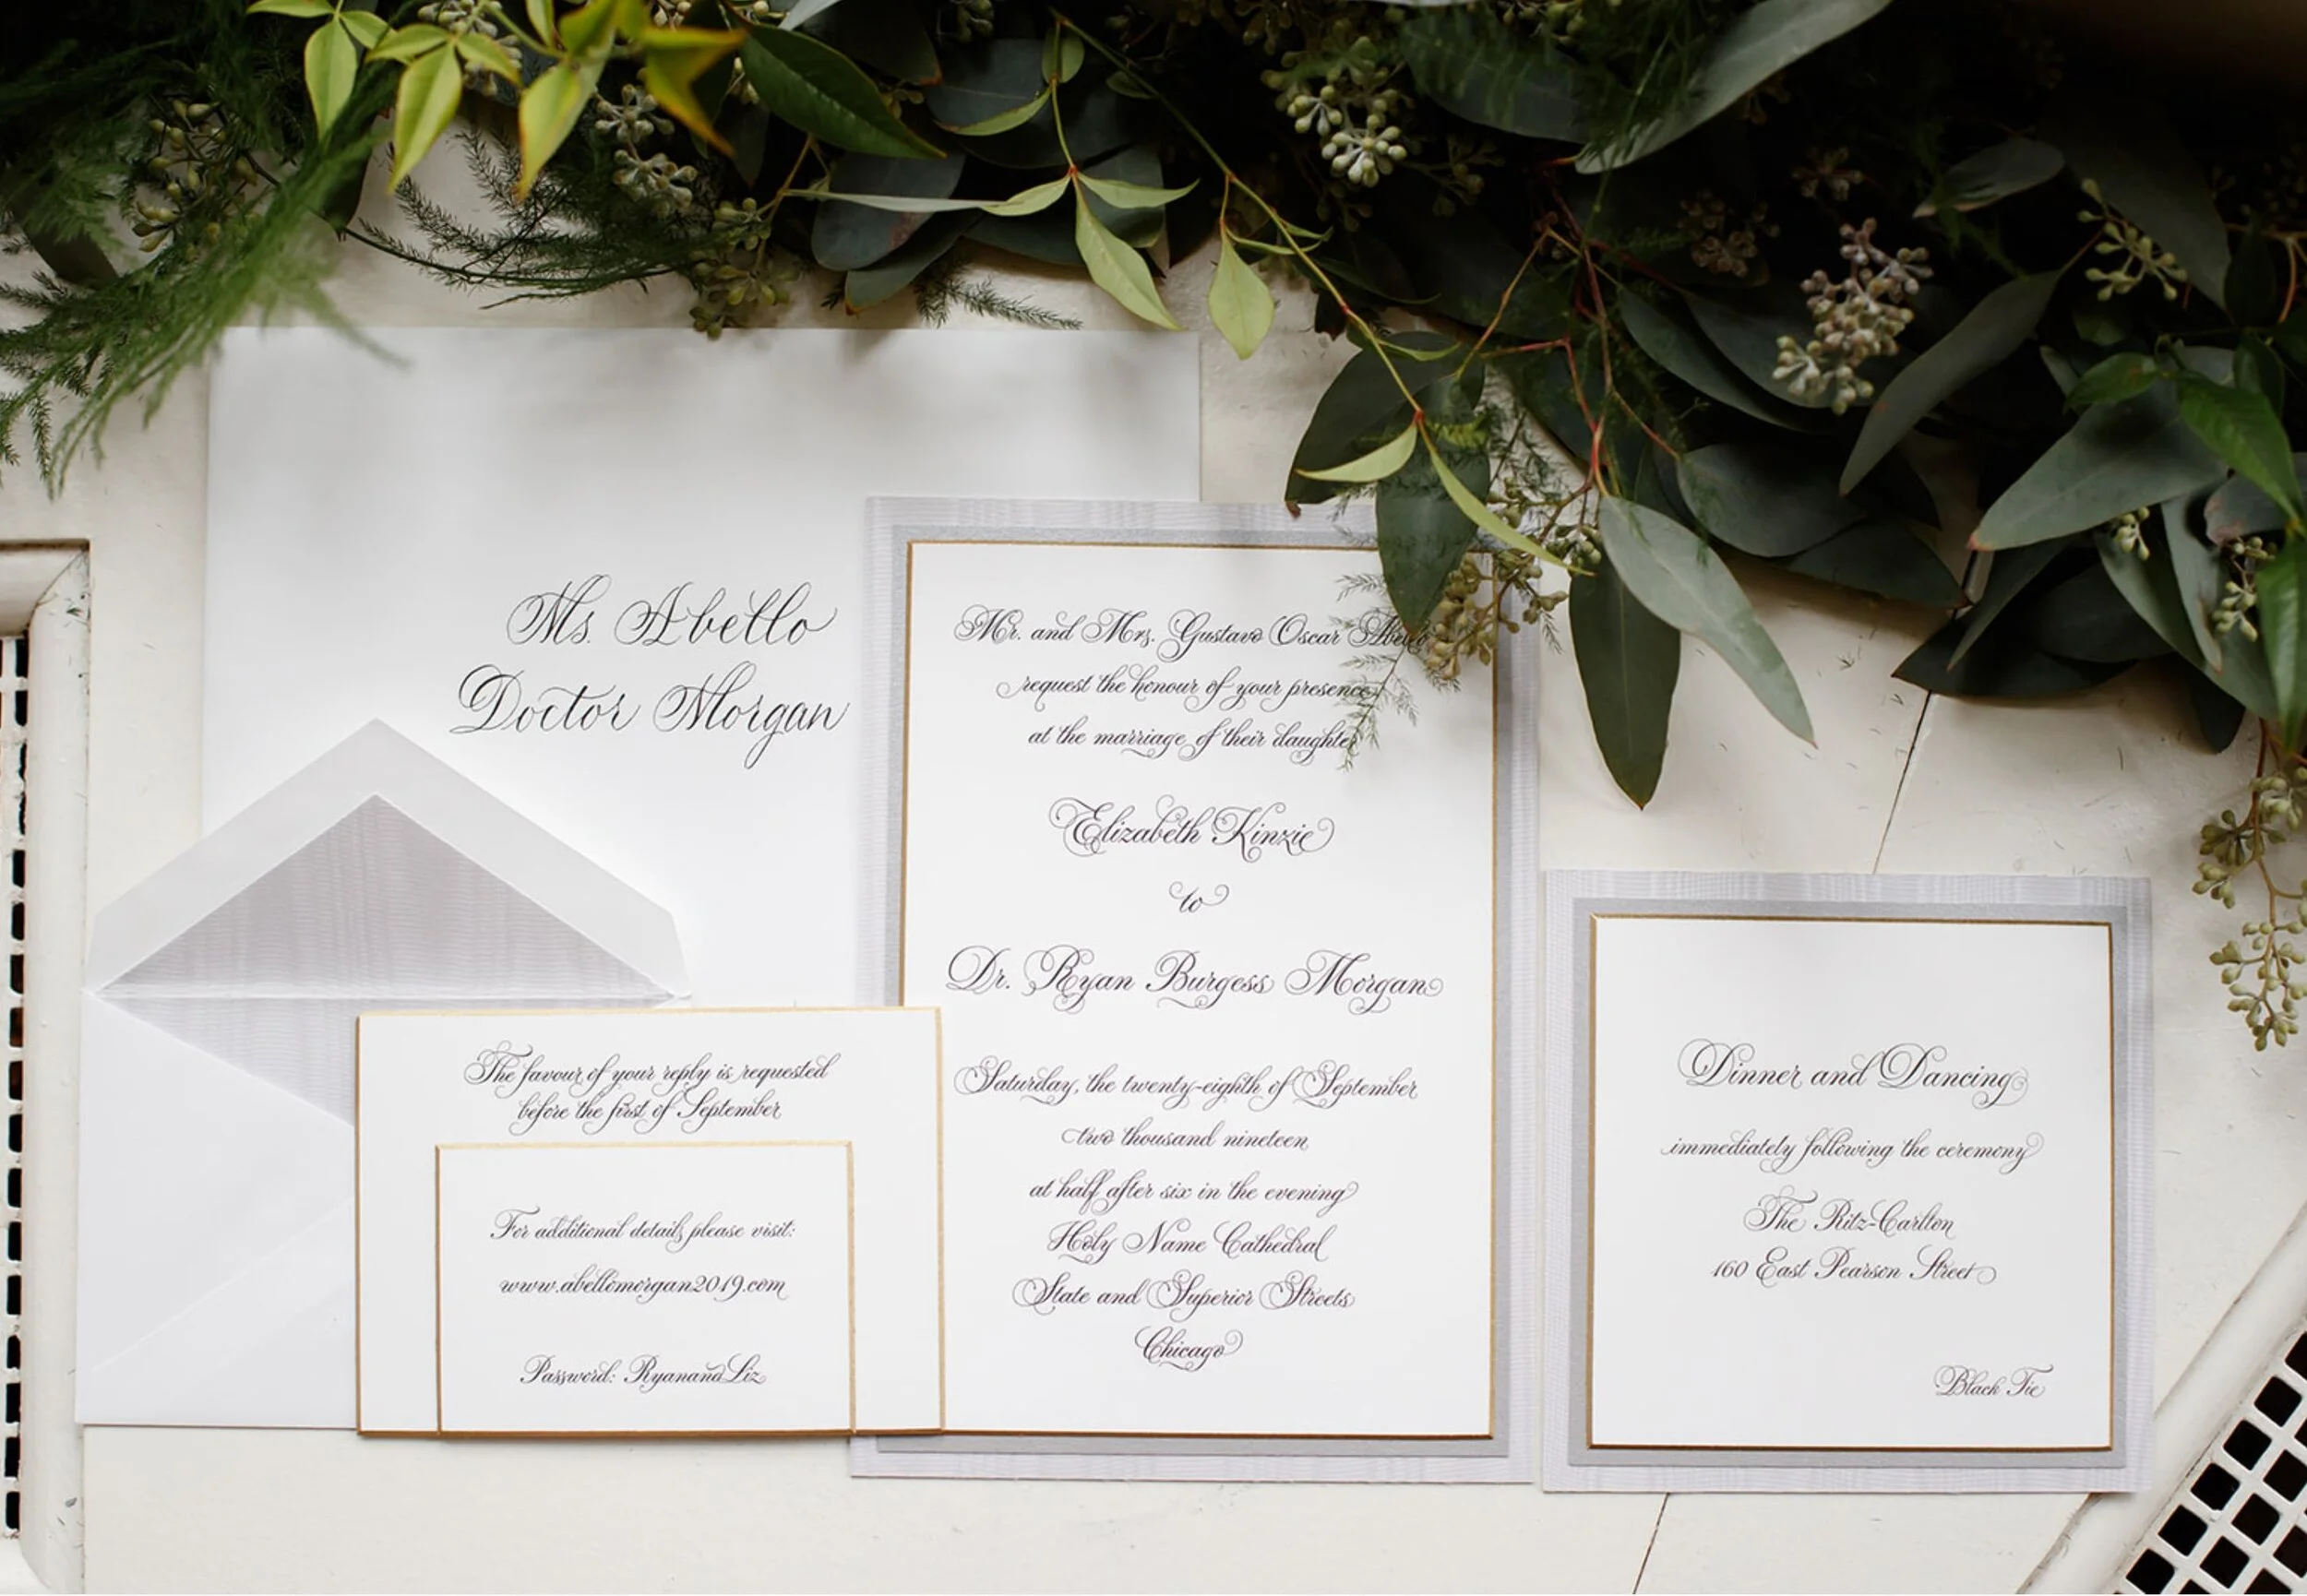 Ms. Abello
Doctor Morgan
Mr. and Mrs. Gustavo Oscar Abello
request the honour of your presence
at the marriage of their daughter
Elizabeth Kinzie
to
Dr. Ryan Burgess Morgan
Saturday, the twenty-eighth of September
two thousand nineteen
at half after six in the evening
Holy Name Cathedral
State and Superior Streets
Chicago
The favour of your reply is requested
before the first of September
For additional details please visit:
www.abellomorgan2019.com
Password: RyanandLiz
Dinner and Dancing
immediately following the ceremony
The Ritz-Carlton
160 East Pearson Street
Black Tie